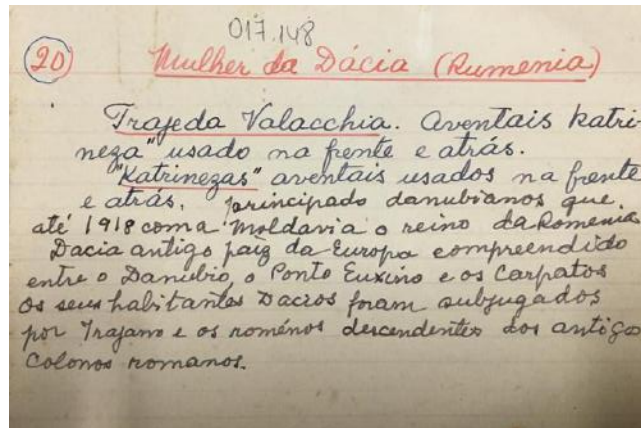 017.148
20 Mulher da Dácia (Rumenia)
Trajeda Valacchia. Aventais katri-
neza" usado na frente e atrás.
"Katrinezas" aventais usados na frente
e atrás. principado danubianos que
até 1918 com a Moldavia o reino da Romenia
Dacia antigo paiz da Europa compreendido
entre o Danubio, o Ponto Euxino e os Carpatos
Os seus habitantes Dacros foram subjugados
por Trajano e os roménos descendentes dos antigo
colonos romanos.